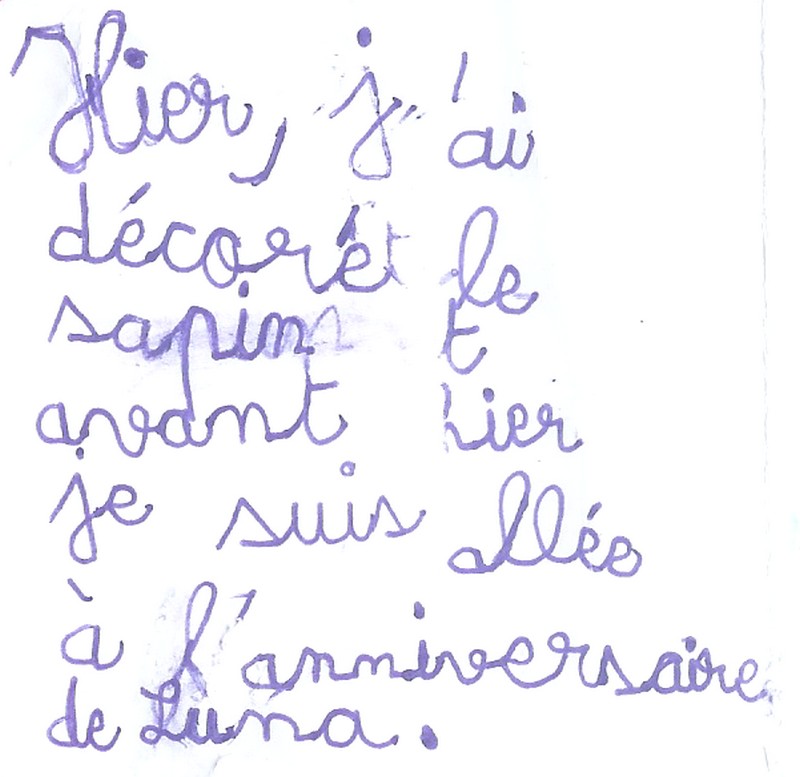 Hier, j'ai
décoré le
sapin et
avant hier
je suis allée
à l'anniversaire
de Luna.